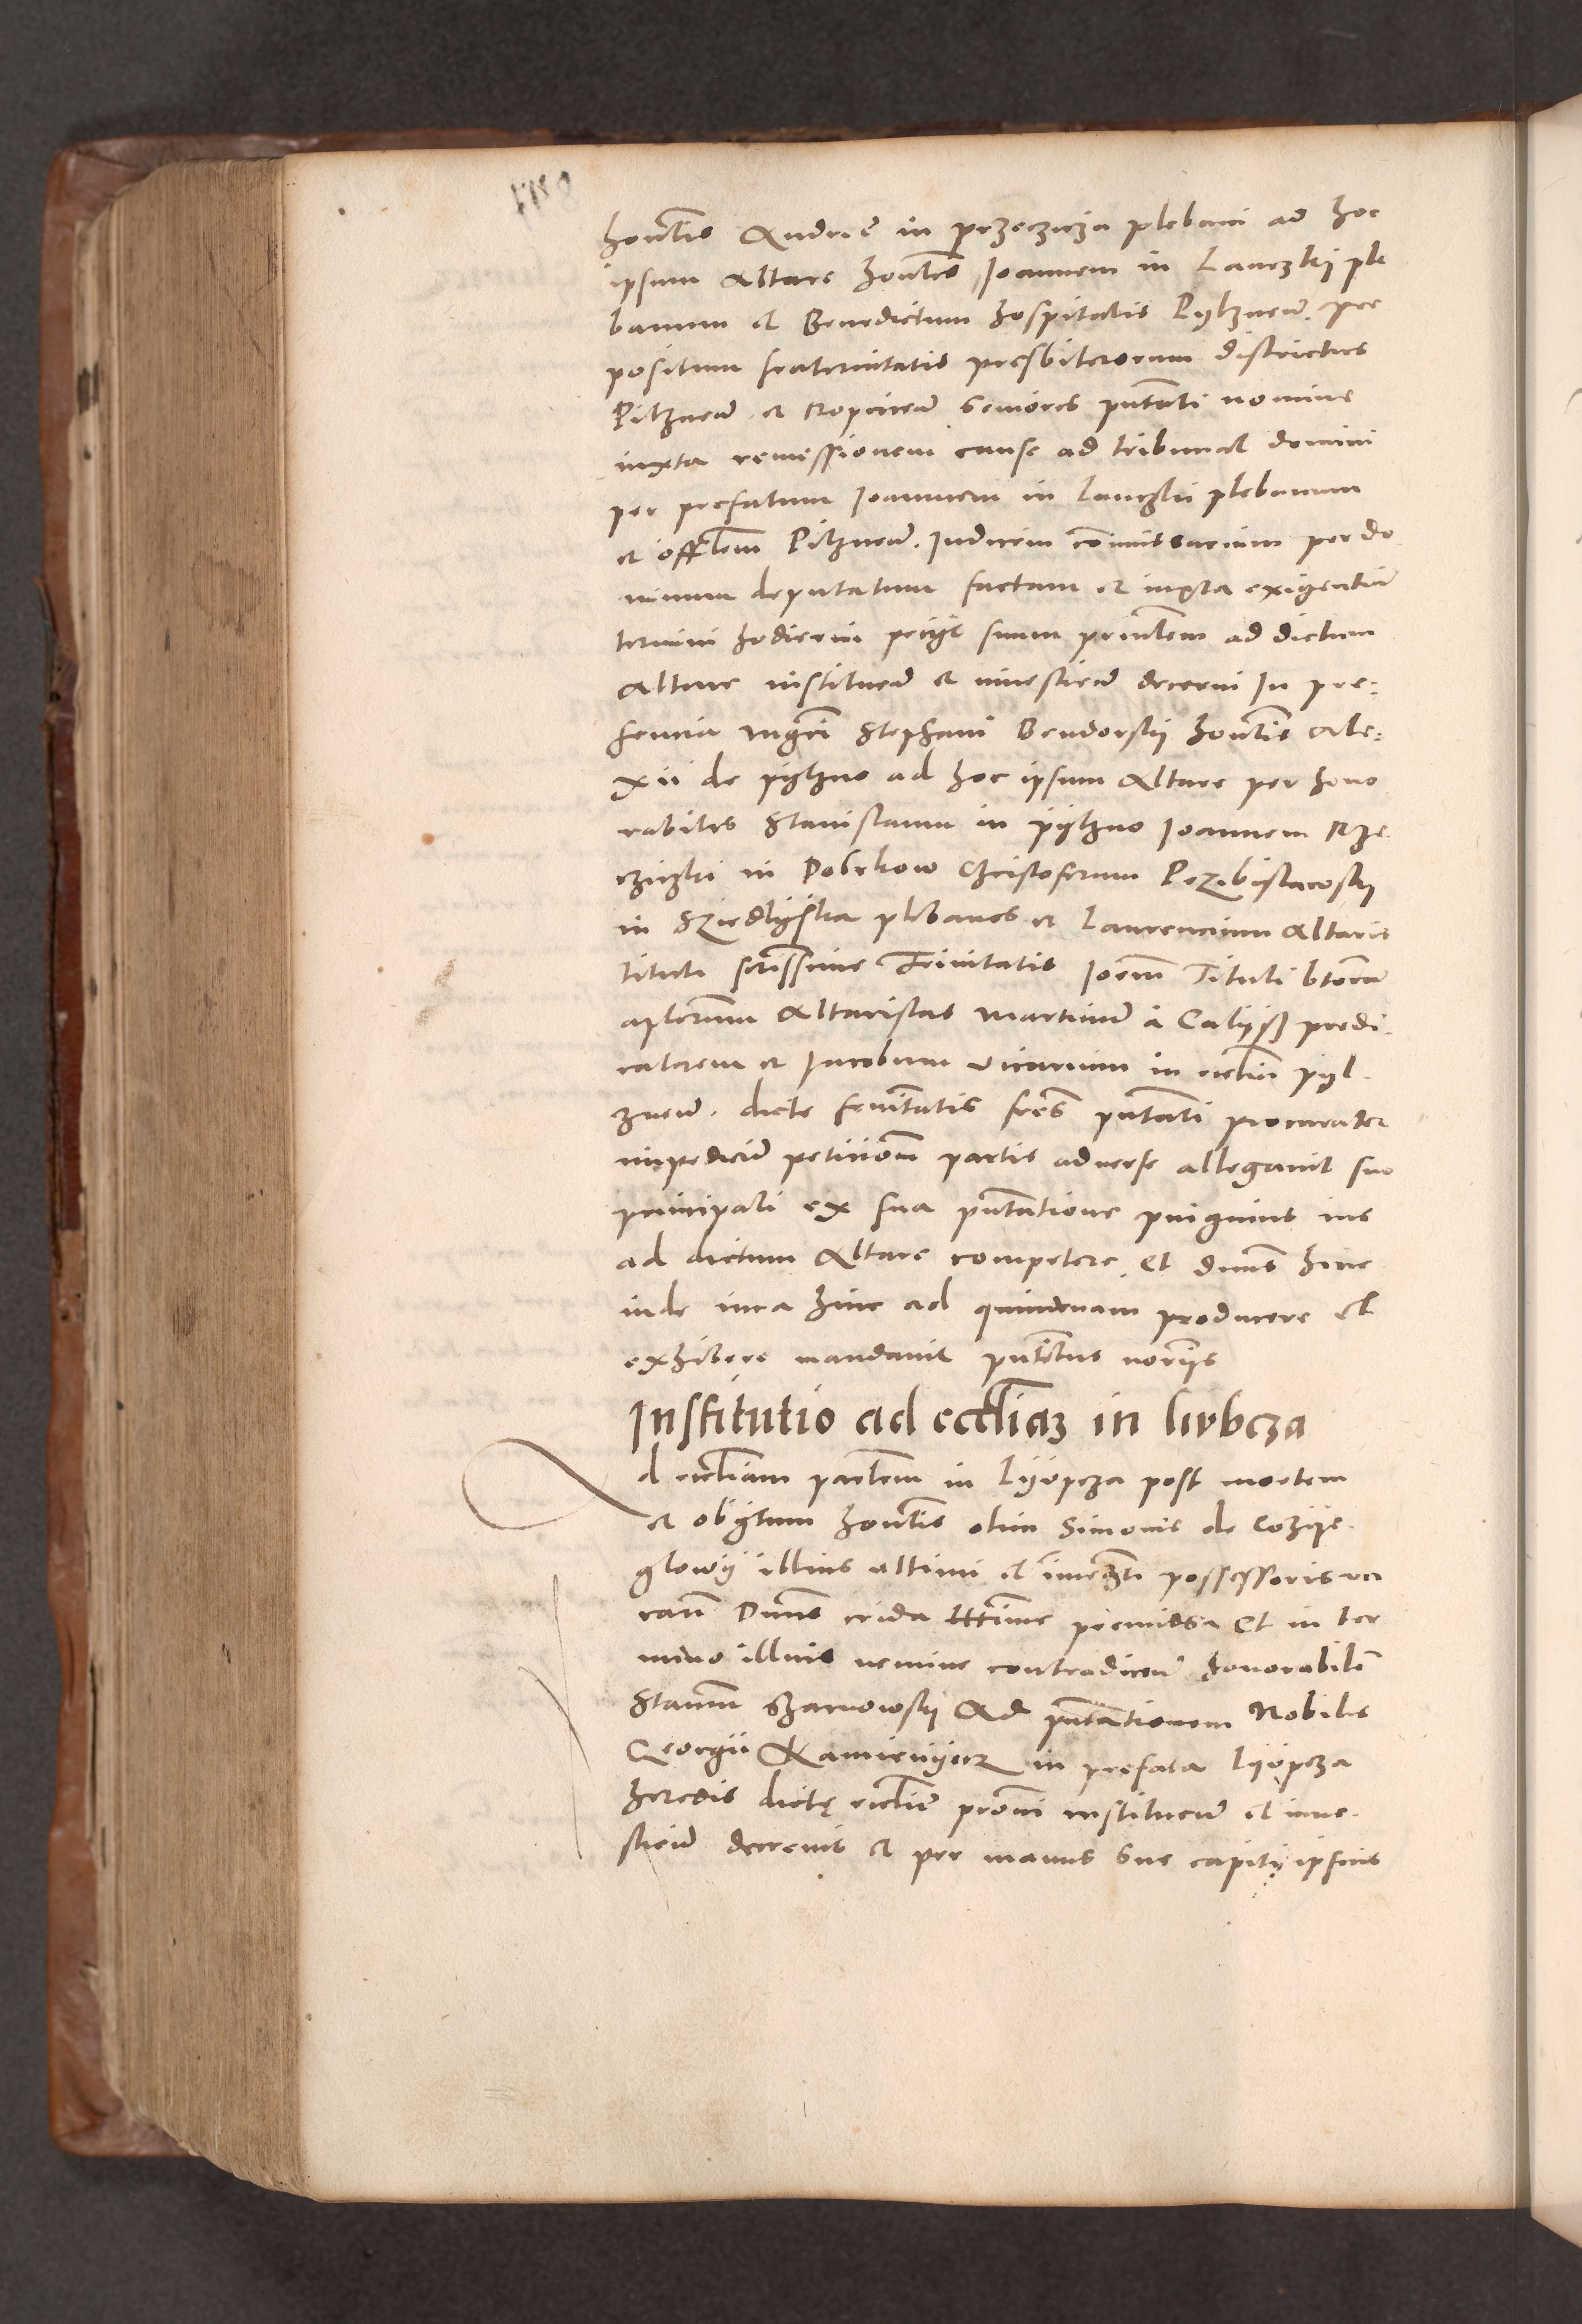 honbilis Andree in przeczicza plebani ad hoc
ipsum altare honbiles Joannem in Lanczkij ple
banum et Benedictum hospitalis Pylznen. pre
positum fraternitatis presbiterorum districtus
Pilznen et Ropcicen seniores putati nomine
iuxta remissionem cause ad tribunal domini
per prefatum Joannem in Lanczki plebanum
et offlem Pilznen. Judicem comissarium per do
minum deputatum factam et iuxta exigentiam
termini hodierni petijt suum prinlem ad dictum
altare instituen et inuestien decerni In pre:
sencia mgri Stephani Bendorskij honbilis Ale:
xii de pijlzno ad hoc ipsum altare per hono
rabiles Stanislaum in pijlzno Joannem Rze
cziczki in Dobrkow Christoferum Przibislawskij
in Sziedlijska plebanos et Laurencium altaris
tituli sctissime Trinitatis Joem Tituli btorum
aplorum altaristas martinum a Calijsz predi
catorem et Jacobum vicarium in ecclia pijl
znen. dicte frnitatis fres putati procurator
impedien peticionem partis aduerse allegauit suo
principali ex sua putatione pinguius ius
ad dictum altare competere Et dnus hinc
inde iura hinc ad quindenam producere et
exhibere mandauit putibus notarijs
Institutio ad eccliam in lipbcza
d eccliam parlem in Lijopcza post mortem
et obijtum honbilis olim Simonis de Cozije
glowij illius vltimi et inmediati possessoris va
can Dnus crida lttime premissa Et in ter
mino illius nemine contradicen honorabilem
Stanum Czarnowskij Ad putationem Nobilis
Georgii Kamienijecz in prefata Lijopcza
heredis dictę ecclie proni instituen et inue
stien decreuit et per manus sue capiti ipsius